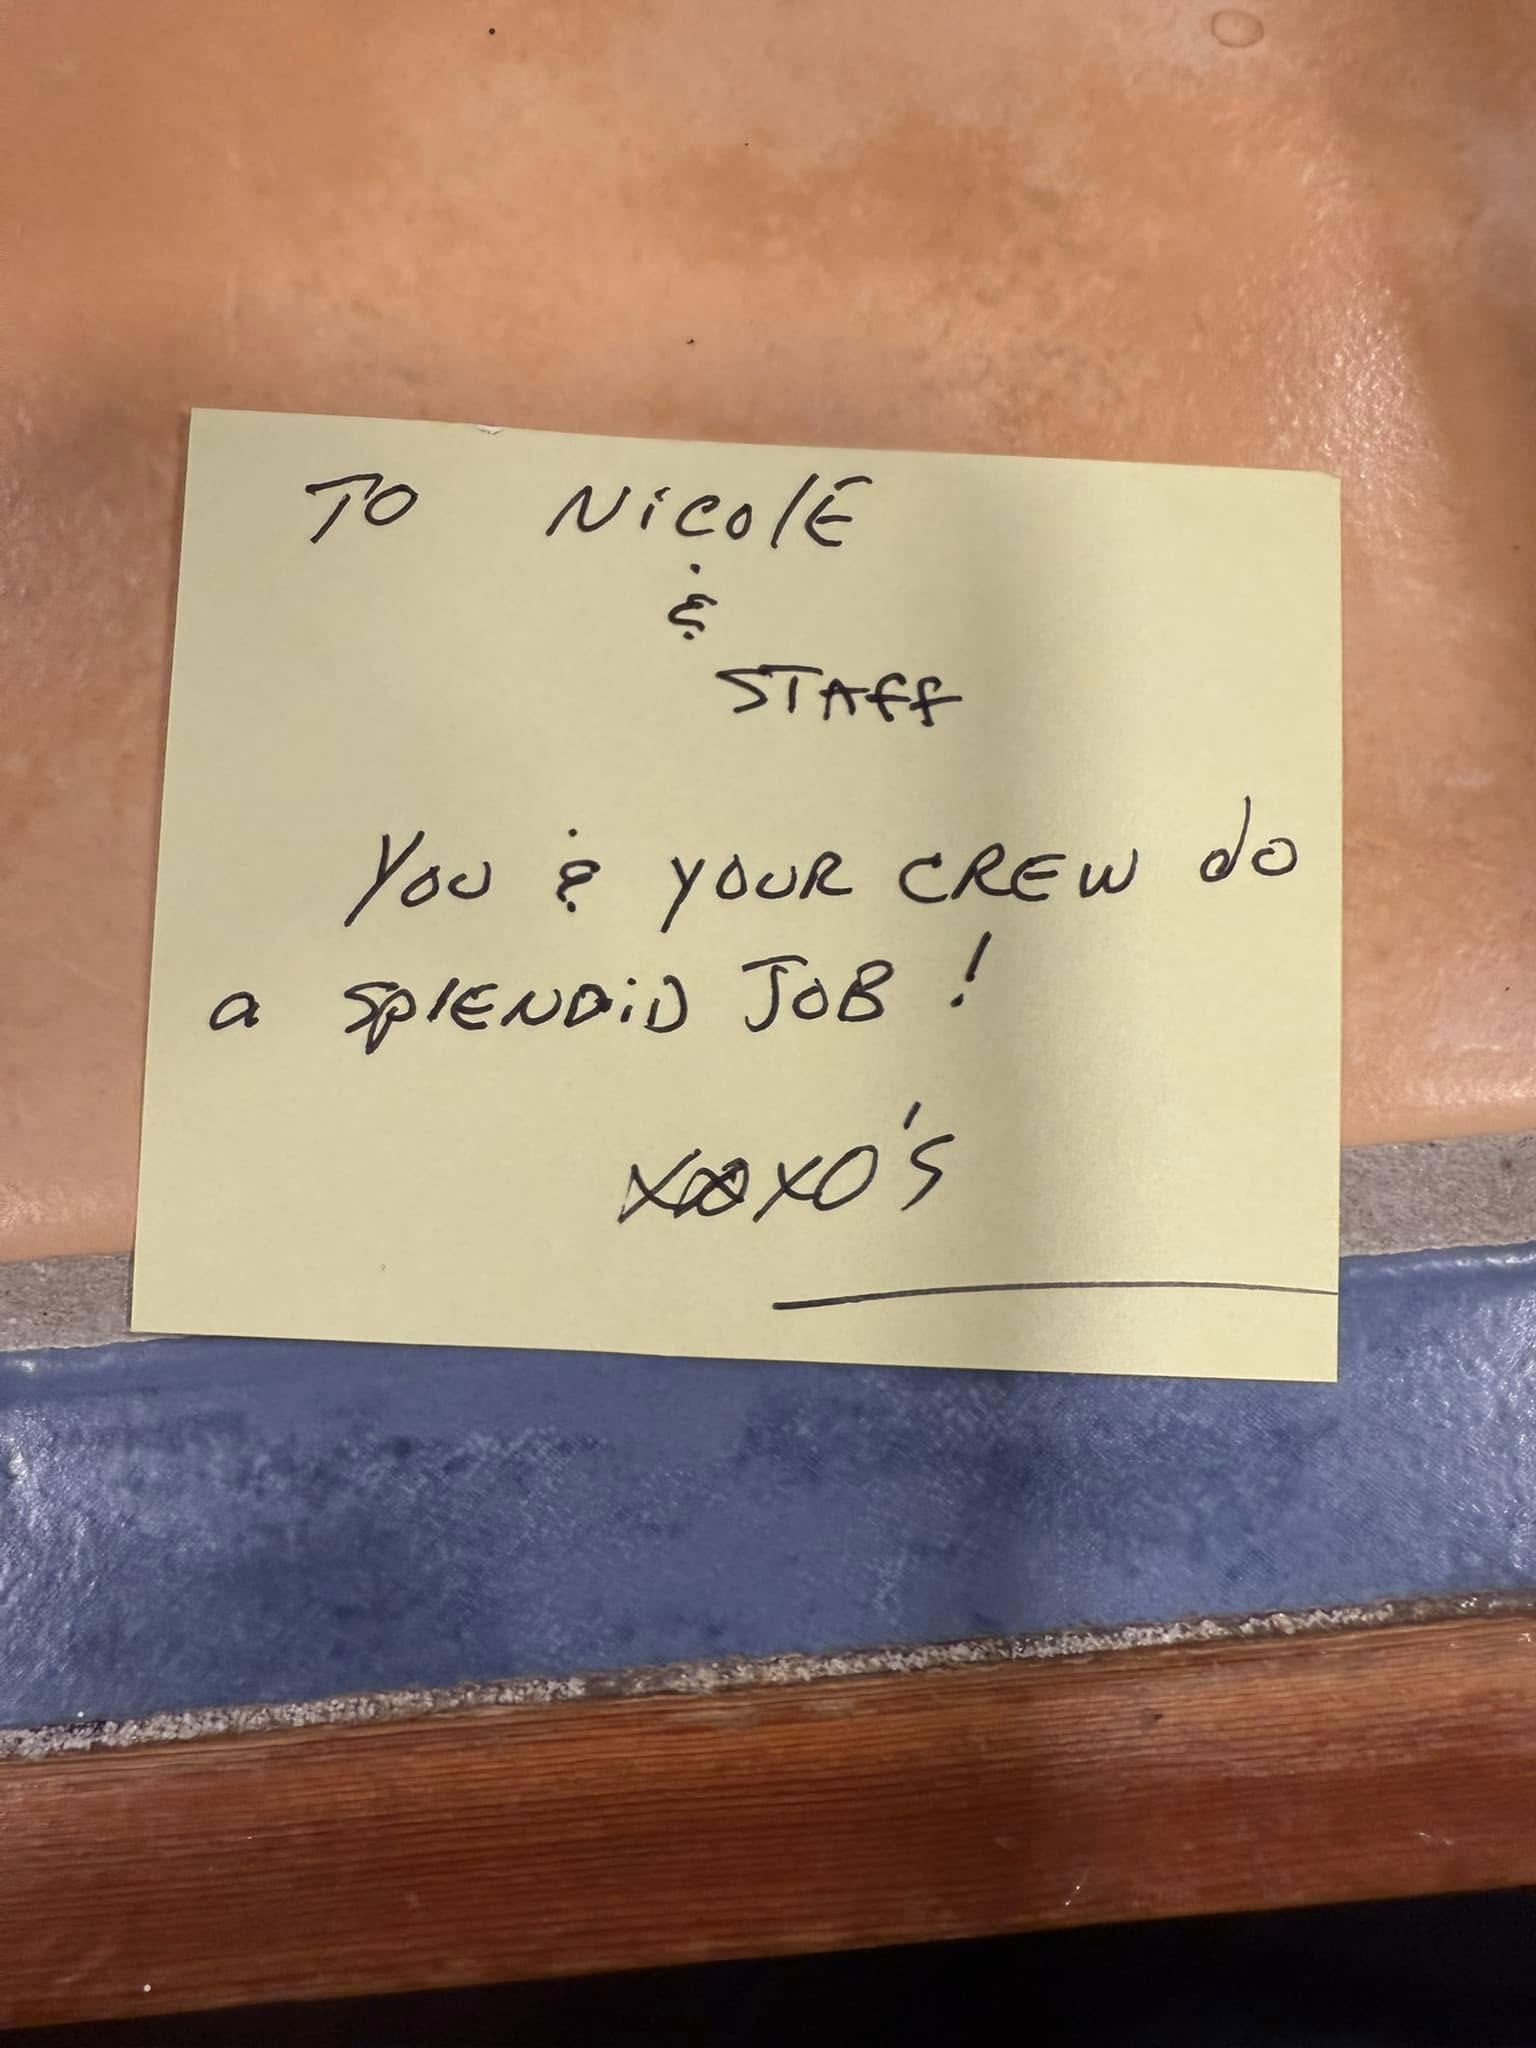 TO NicolE
&
STAff
You & YOUR CREW do
a SplENDiD JOB!
XOXO's